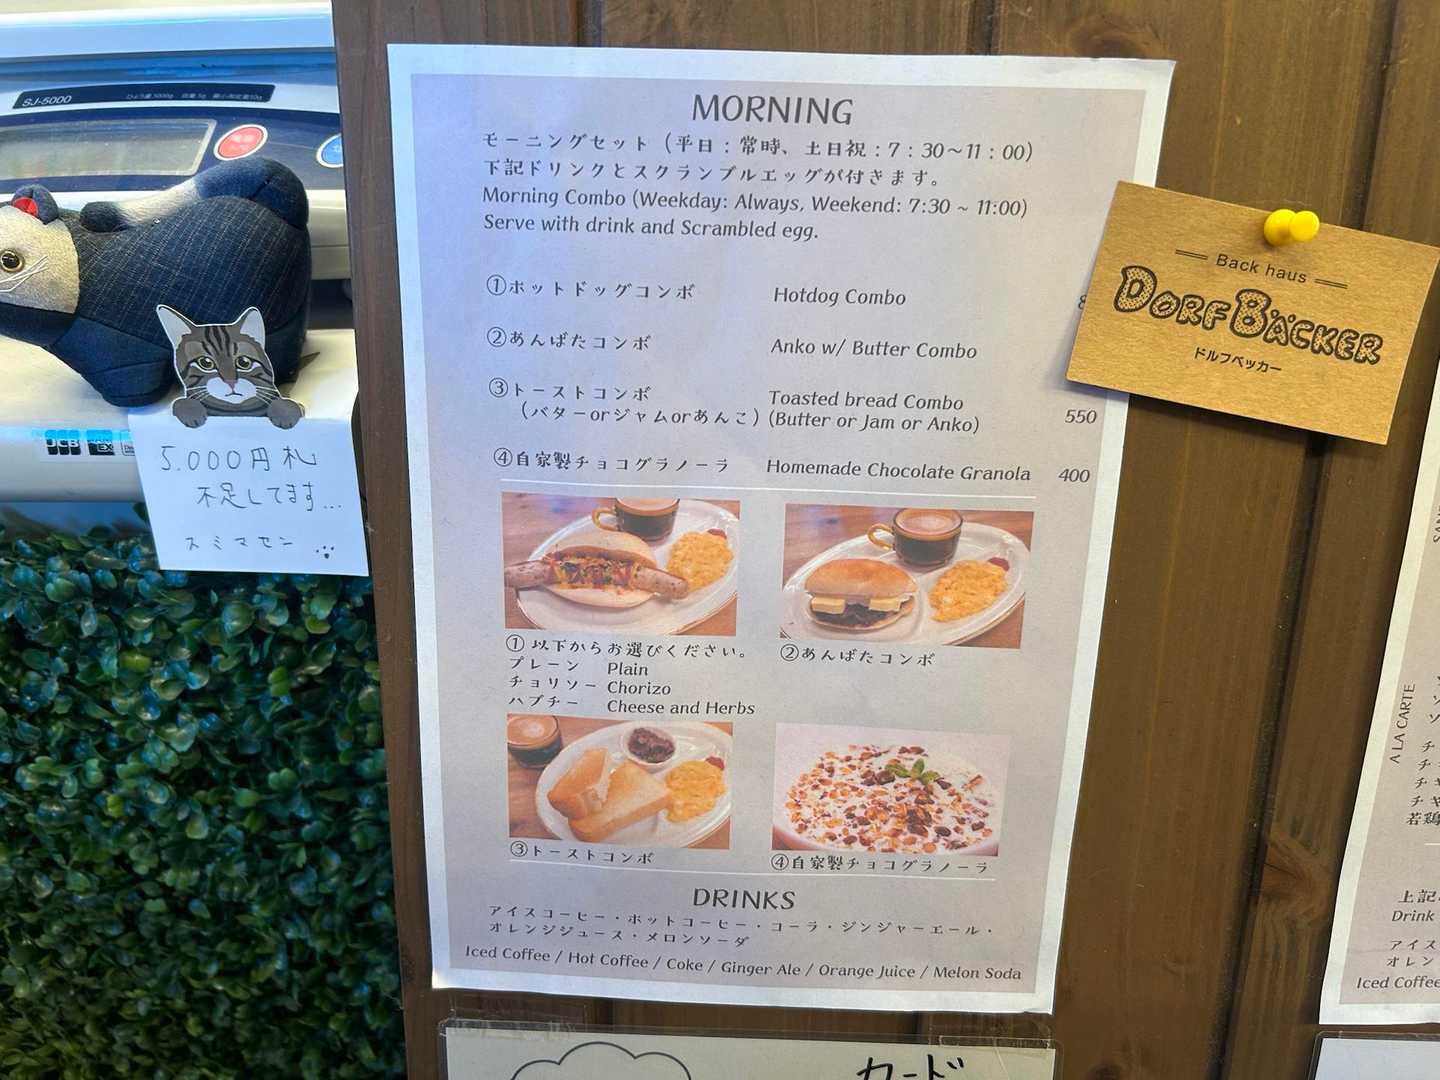 SJ-5000
JCB
5,000円札
不足してます…
スミマセン
MORNING
モーニングセット（平日：常時、土日祝：7：30〜11：00）
下記ドリンクとスクランブルエッグが付きます。
Morning Combo (Weekday: Always, Weekend: 7:30 ~ 11:00)
Serve with drink and Scrambled egg.
①ホットドッグコンボ Hotdog Combo
②あんばたコンボ Anko w/ Butter Combo
③トーストコンボ Toasted bread Combo
（バターorジャムorあんこ）(Butter or Jam or Anko) 550
④自家製チョコグラノーラ Homemade Chocolate Granola 400
① 以下からお選びください。
プレーン Plain
チョリソー Chorizo
ハブチー Cheese and Herbs
②あんばたコンボ
③トーストコンボ
④自家製チョコグラノーラ
DRINKS
アイスコーヒー・ホットコーヒー・コーラ・ジンジャーエール・
オレンジジュース・メロンソーダ
Iced Coffee / Hot Coffee / Coke / Ginger Ale / Orange Juice / Melon Soda
Back haus
DORFBÄCKER
ドルフベッカー
A LA CARTE
若鶏
上記
Drink
アイス
オレン
Iced Coffee
カード